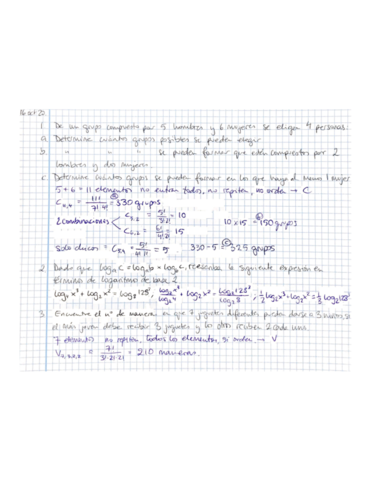 16 oct 20
1. De un grupo compuesto por 5 hombres y 6 mujeres se eligen 4 personas:
a. Determine cuántos grupos posibles se pueden elegir
b. " " " se pueden formar que estén compuestos por 2
hombres y dos mujeres.
c. Determine cuántos grupos se pueden formar en los que haya al menos 1 mujer
5 + 6 = 11 elementos no entran todos, no repiten, no orden → C
C₁₁,₄ = 11! / 7! 4! = 330 grupos
2 combinaciones C₅,₂ = 5! / 3! 2! = 10
C₆,₂ = 6! / 4! 2! = 15 10 x 15 = 150 grupos
Solo chicos = C₅,₄ = 5! / 4! 1! = 5 330 - 5 = 325 grupos
2. Dado que log c = log b · log c, reescriba la siguiente expresión en
término de logaritmo de base 2
log₄ x³ + log₂ x² - log₈ 125³, log₂ x³ / log₂ 4 + log₂ x² - log₂ 125³ / log₂ 8
3. Encuentre el nº de maneras en que 7 juguetes diferentes pueden darse a 3 niños, si
el más joven debe recibir 3 juguetes y los otros reciben 2 cada uno.
7 elementos no repiten, todos los elementos, si orden → V
= 7! / 3! 2! 2! = 210 maneras